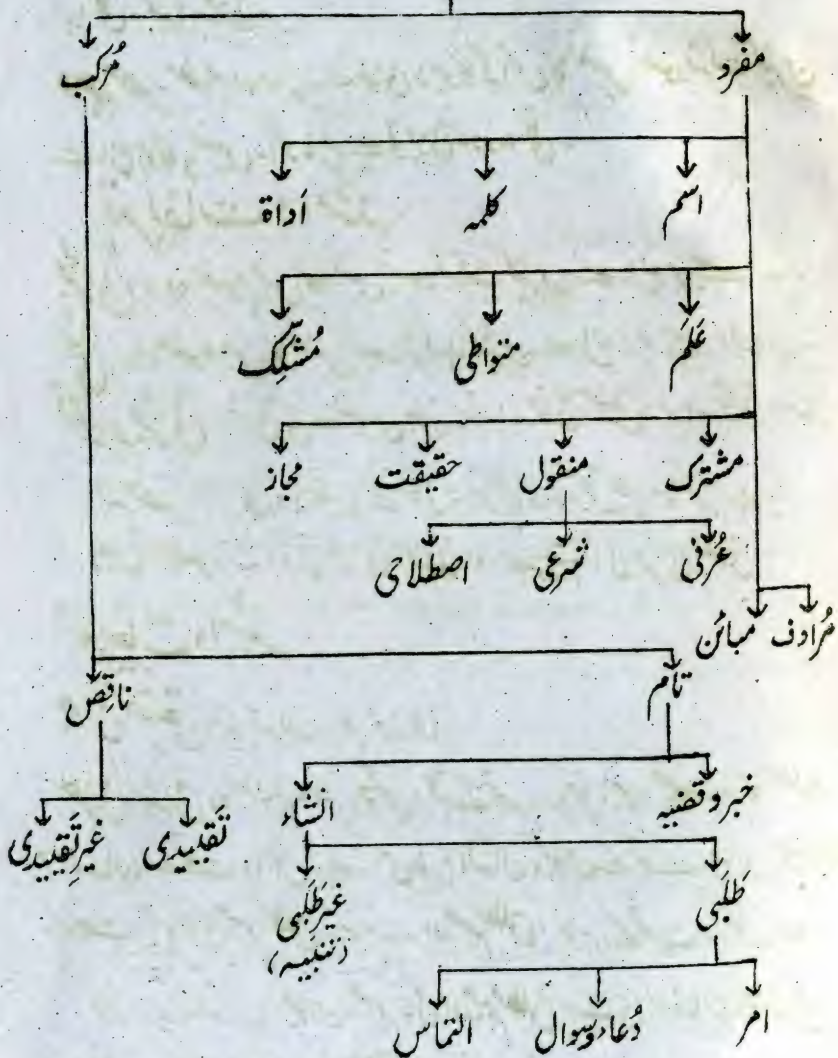 مفرد مُرکب
اسم کلمہ اَداة
عَلَم متواطی مُشکِّک
مشترک منقول حقیقت مجاز
عُرفی شرعی اصطلاحی
مُرادف مبائن
تام ناقِص
خبر و قضیہ انشاء تَقیِیدی غیرِ تَقیِیدی
طَلَبی غیرِ طَلَبی
(تنبیہ)
امر دُعاء و سوال التماس